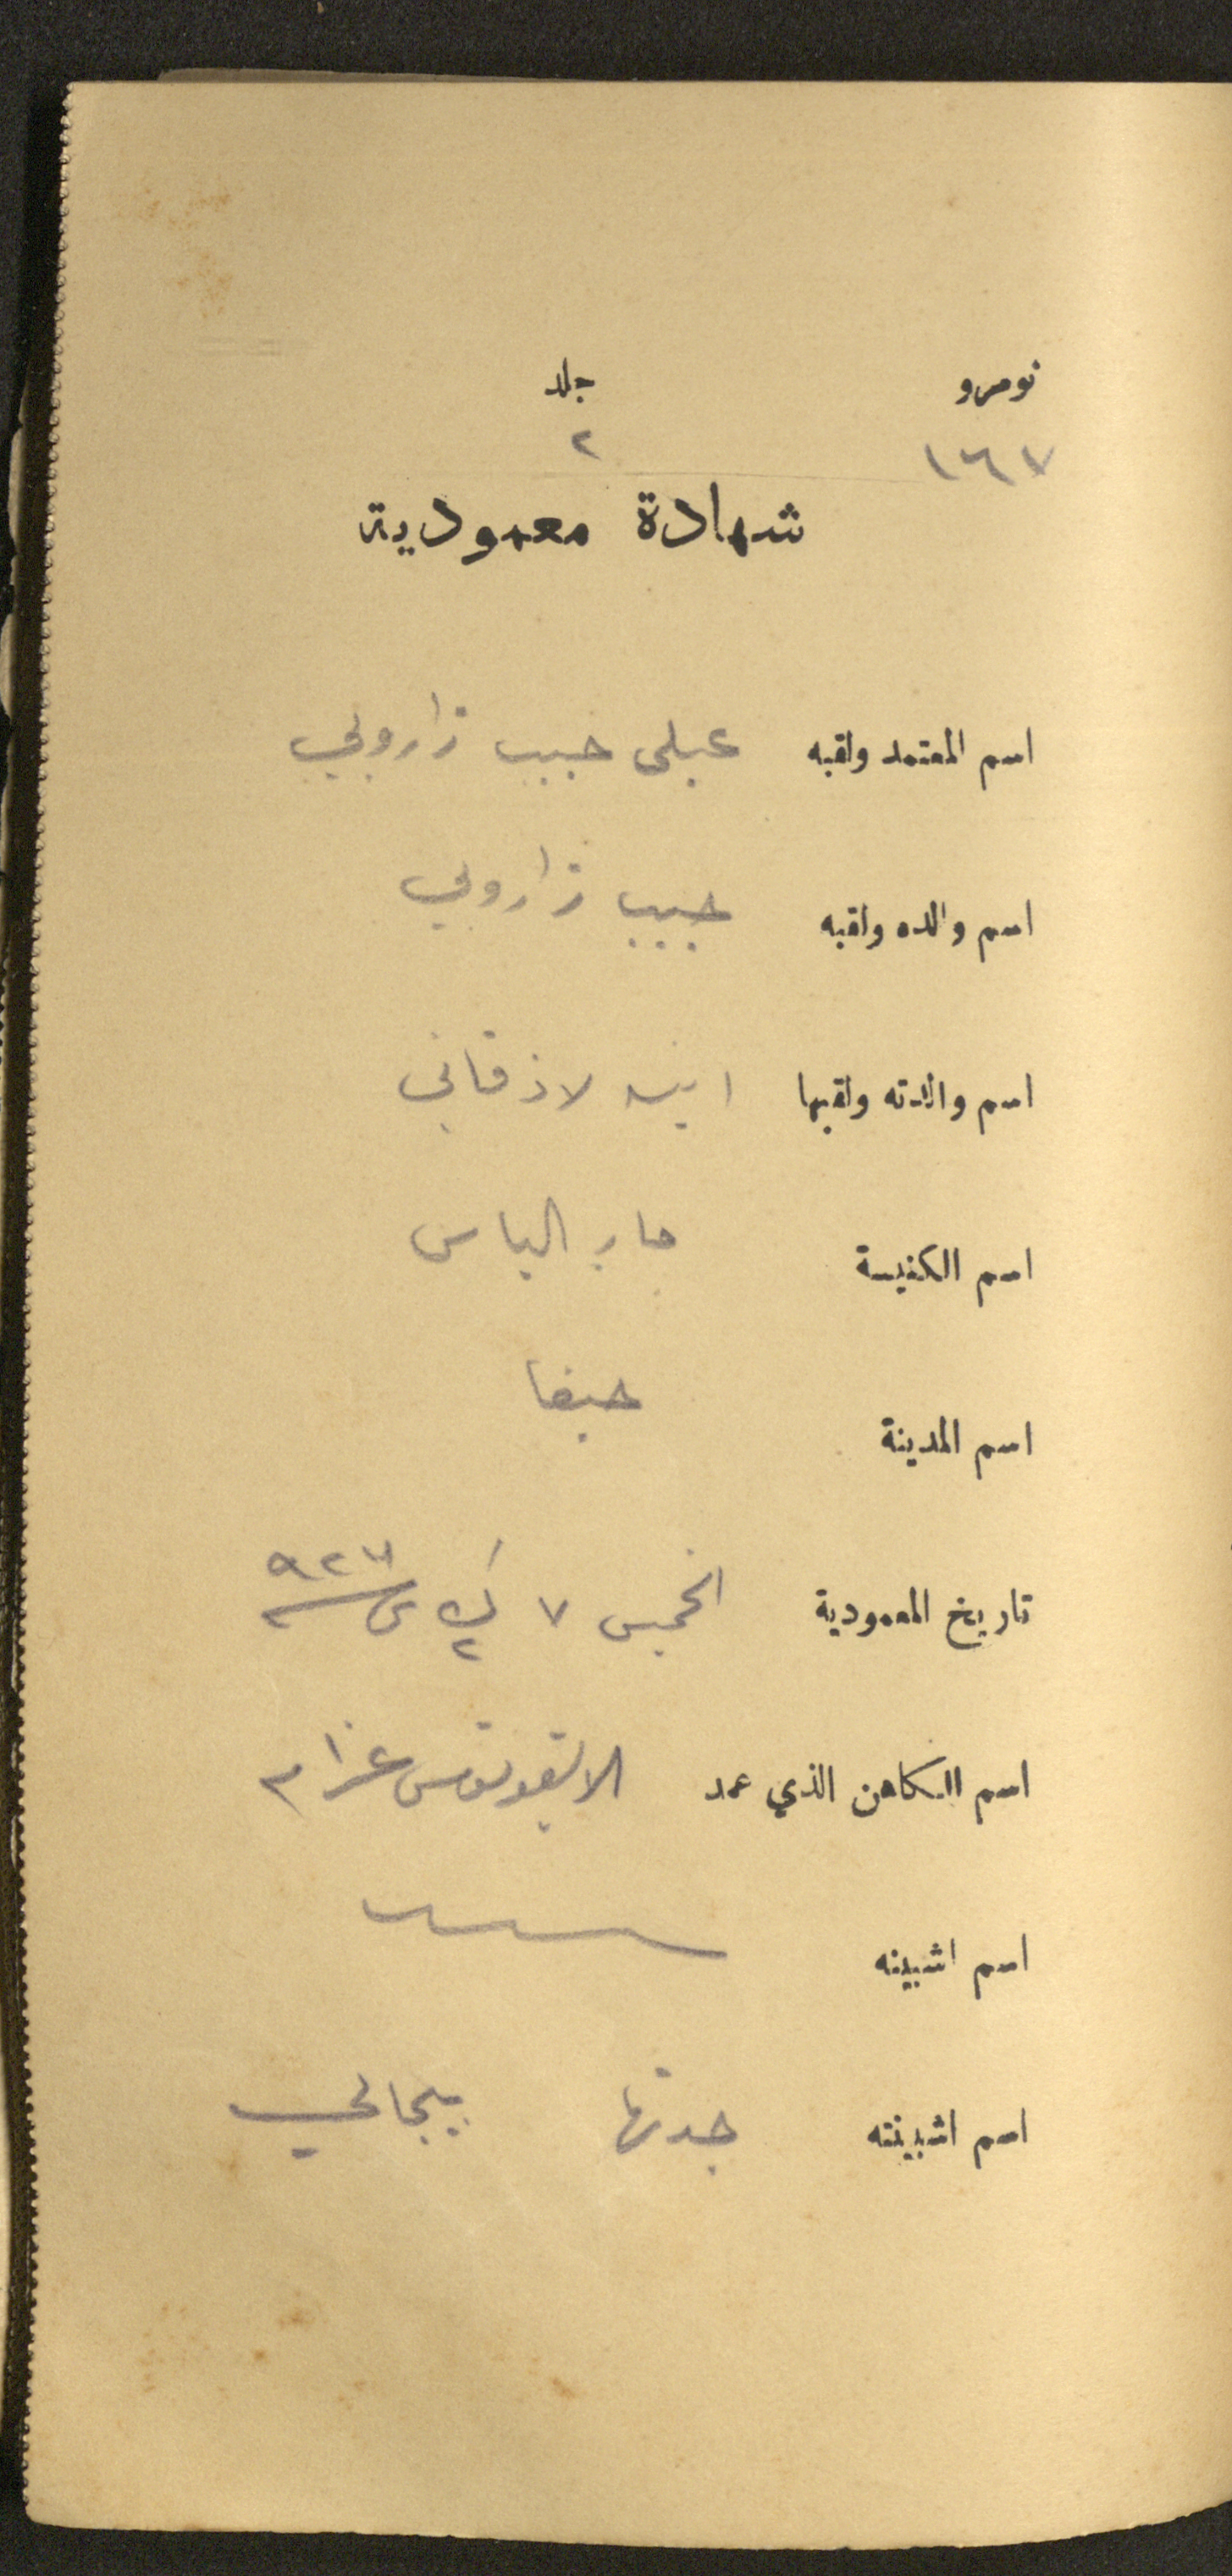 نومرو جلد
١٦٧ ٢
شهادة معمودية
اسم المعتمد ولقبه عبلى حبيب زاروبي
اسم والده ولقبه حبيب زاروبي
اسم والدته ولقبها لاذقاني
اسم الكنيسة مار الياس
اسم المدينة حيفا
تاريخ المعمودية الخميس ٧ ك٢ س
اسم الكاهن الذي عمد عزام
اسم اشبينه
اسم اشبينته جدتها